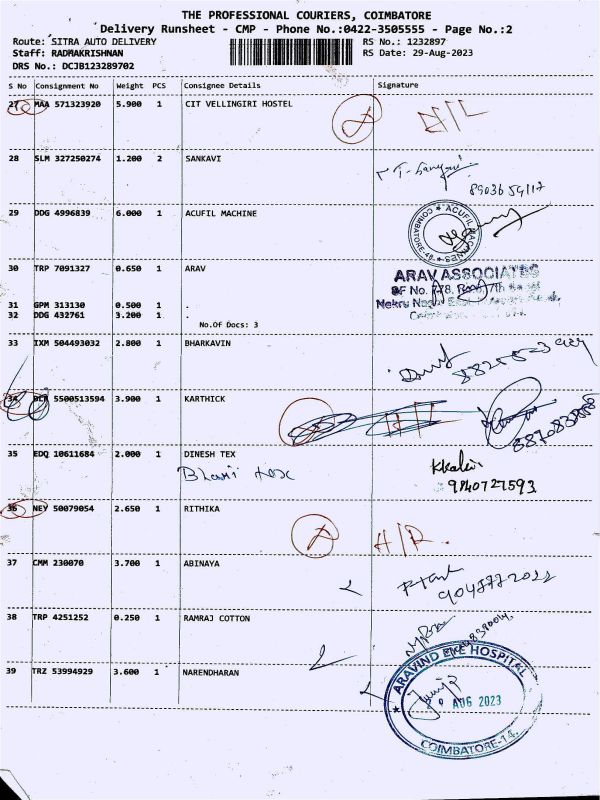 THE PROFESSIONAL COURIERS, COIMBATORE
Delivery Runsheet - CMP - Phone No.:0422-3505555 - Page No.:2
Route: SITRA AUTO DELIVERY RS No.: 1232897
Staff: RADMAKRISHNAN RS Date: 29-Aug-2023
DRS No.: DCJB123289702
S No Consignment No Weight PCS Consignee Details Signature
27 MAA 571323920 5.900 1 CIT VELLINGIRI HOSTEL
28 SLM 327250274 1.200 2 SANKAVI
29 DDG 4996839 6.000 1 ACUFIL MACHINE
ACUFIL MACHINES
COIMBATORE-48
30 TRP 7091327 0.650 1 ARAV
ARAV ASSOCIATES
31 GPM 313130 0.500 1 .
32 DDG 432761 3.200 1 .
No.Of Docs: 3
33 IXM 504493032 2.800 1 BHARKAVIN
34 BLR 5500513594 3.900 1 KARTHICK
35 EDQ 10611684 2.000 1 DINESH TEX
Kkalai
9840727593
36 NEY 50079054 2.650 1 RITHIKA
H/R.
37 CMM 230070 3.700 1 ABINAYA
38 TRP 4251252 0.250 1 RAMRAJ COTTON
39 TRZ 53994929 3.600 1 NARENDHARAN
ARAVIND EYE HOSPITAL
AUG 2023
COIMBATORE-14.